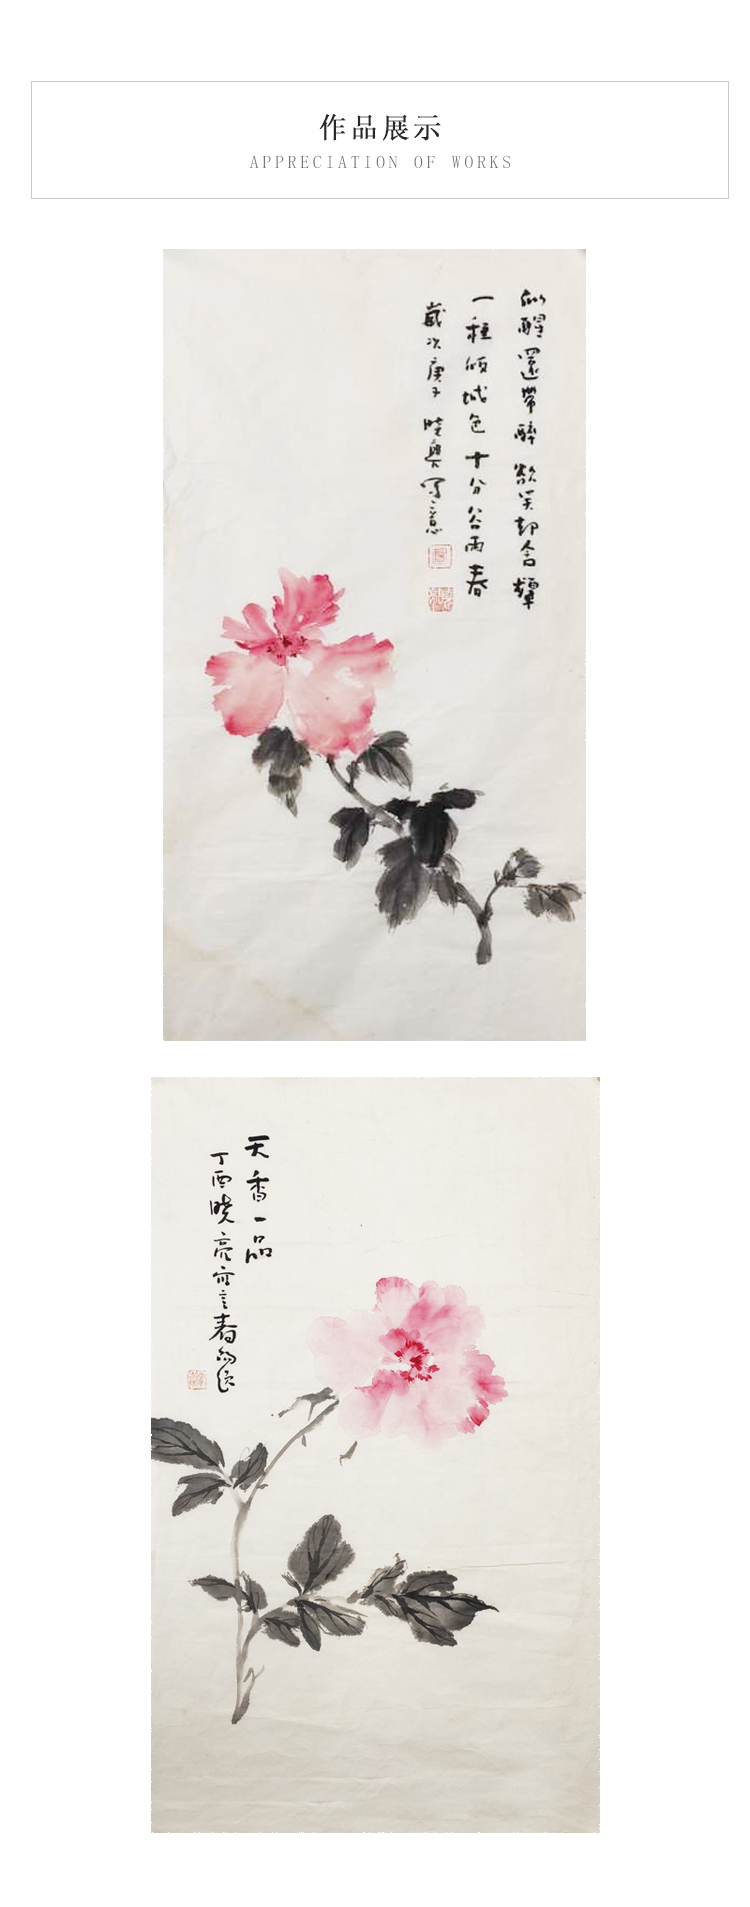 作品展示
APPRECIATION OF WORKS
似醒還帶醉 欲笑却含顰
一種傾城色 十分谷雨春
歲次庚子 曉奥写意
天香一品
丁酉曉亮
春